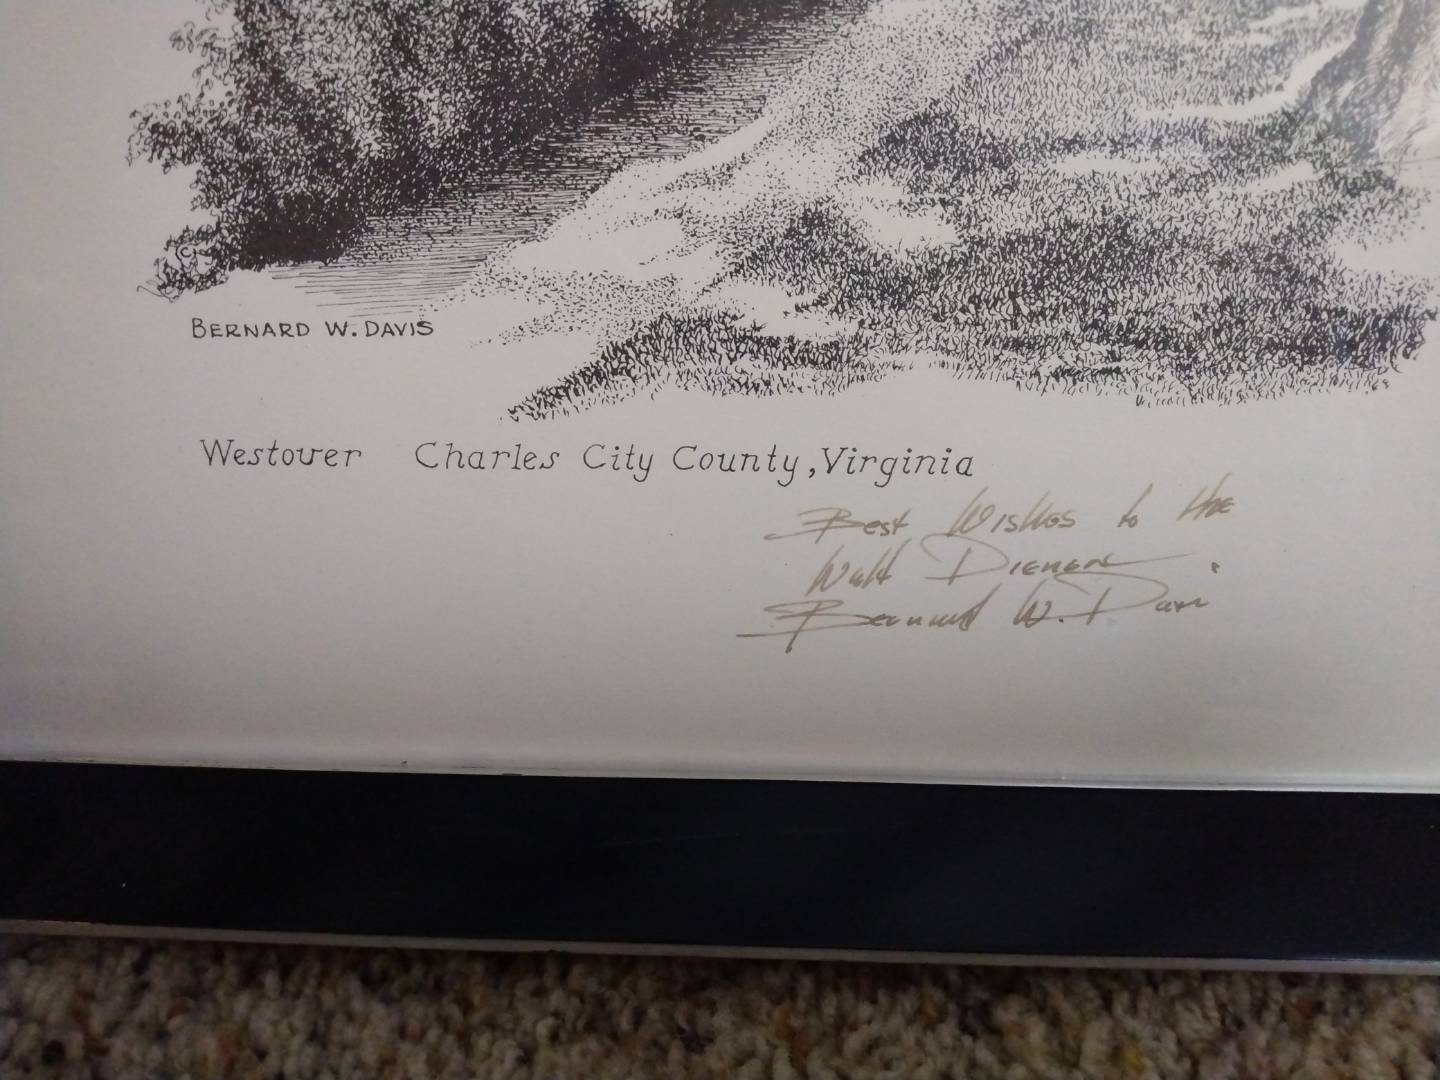 BERNARD W. DAVIS
Westover Charles City County, Virginia
Best Wishes to the
Walt Dieners.
Bernard W. Davis